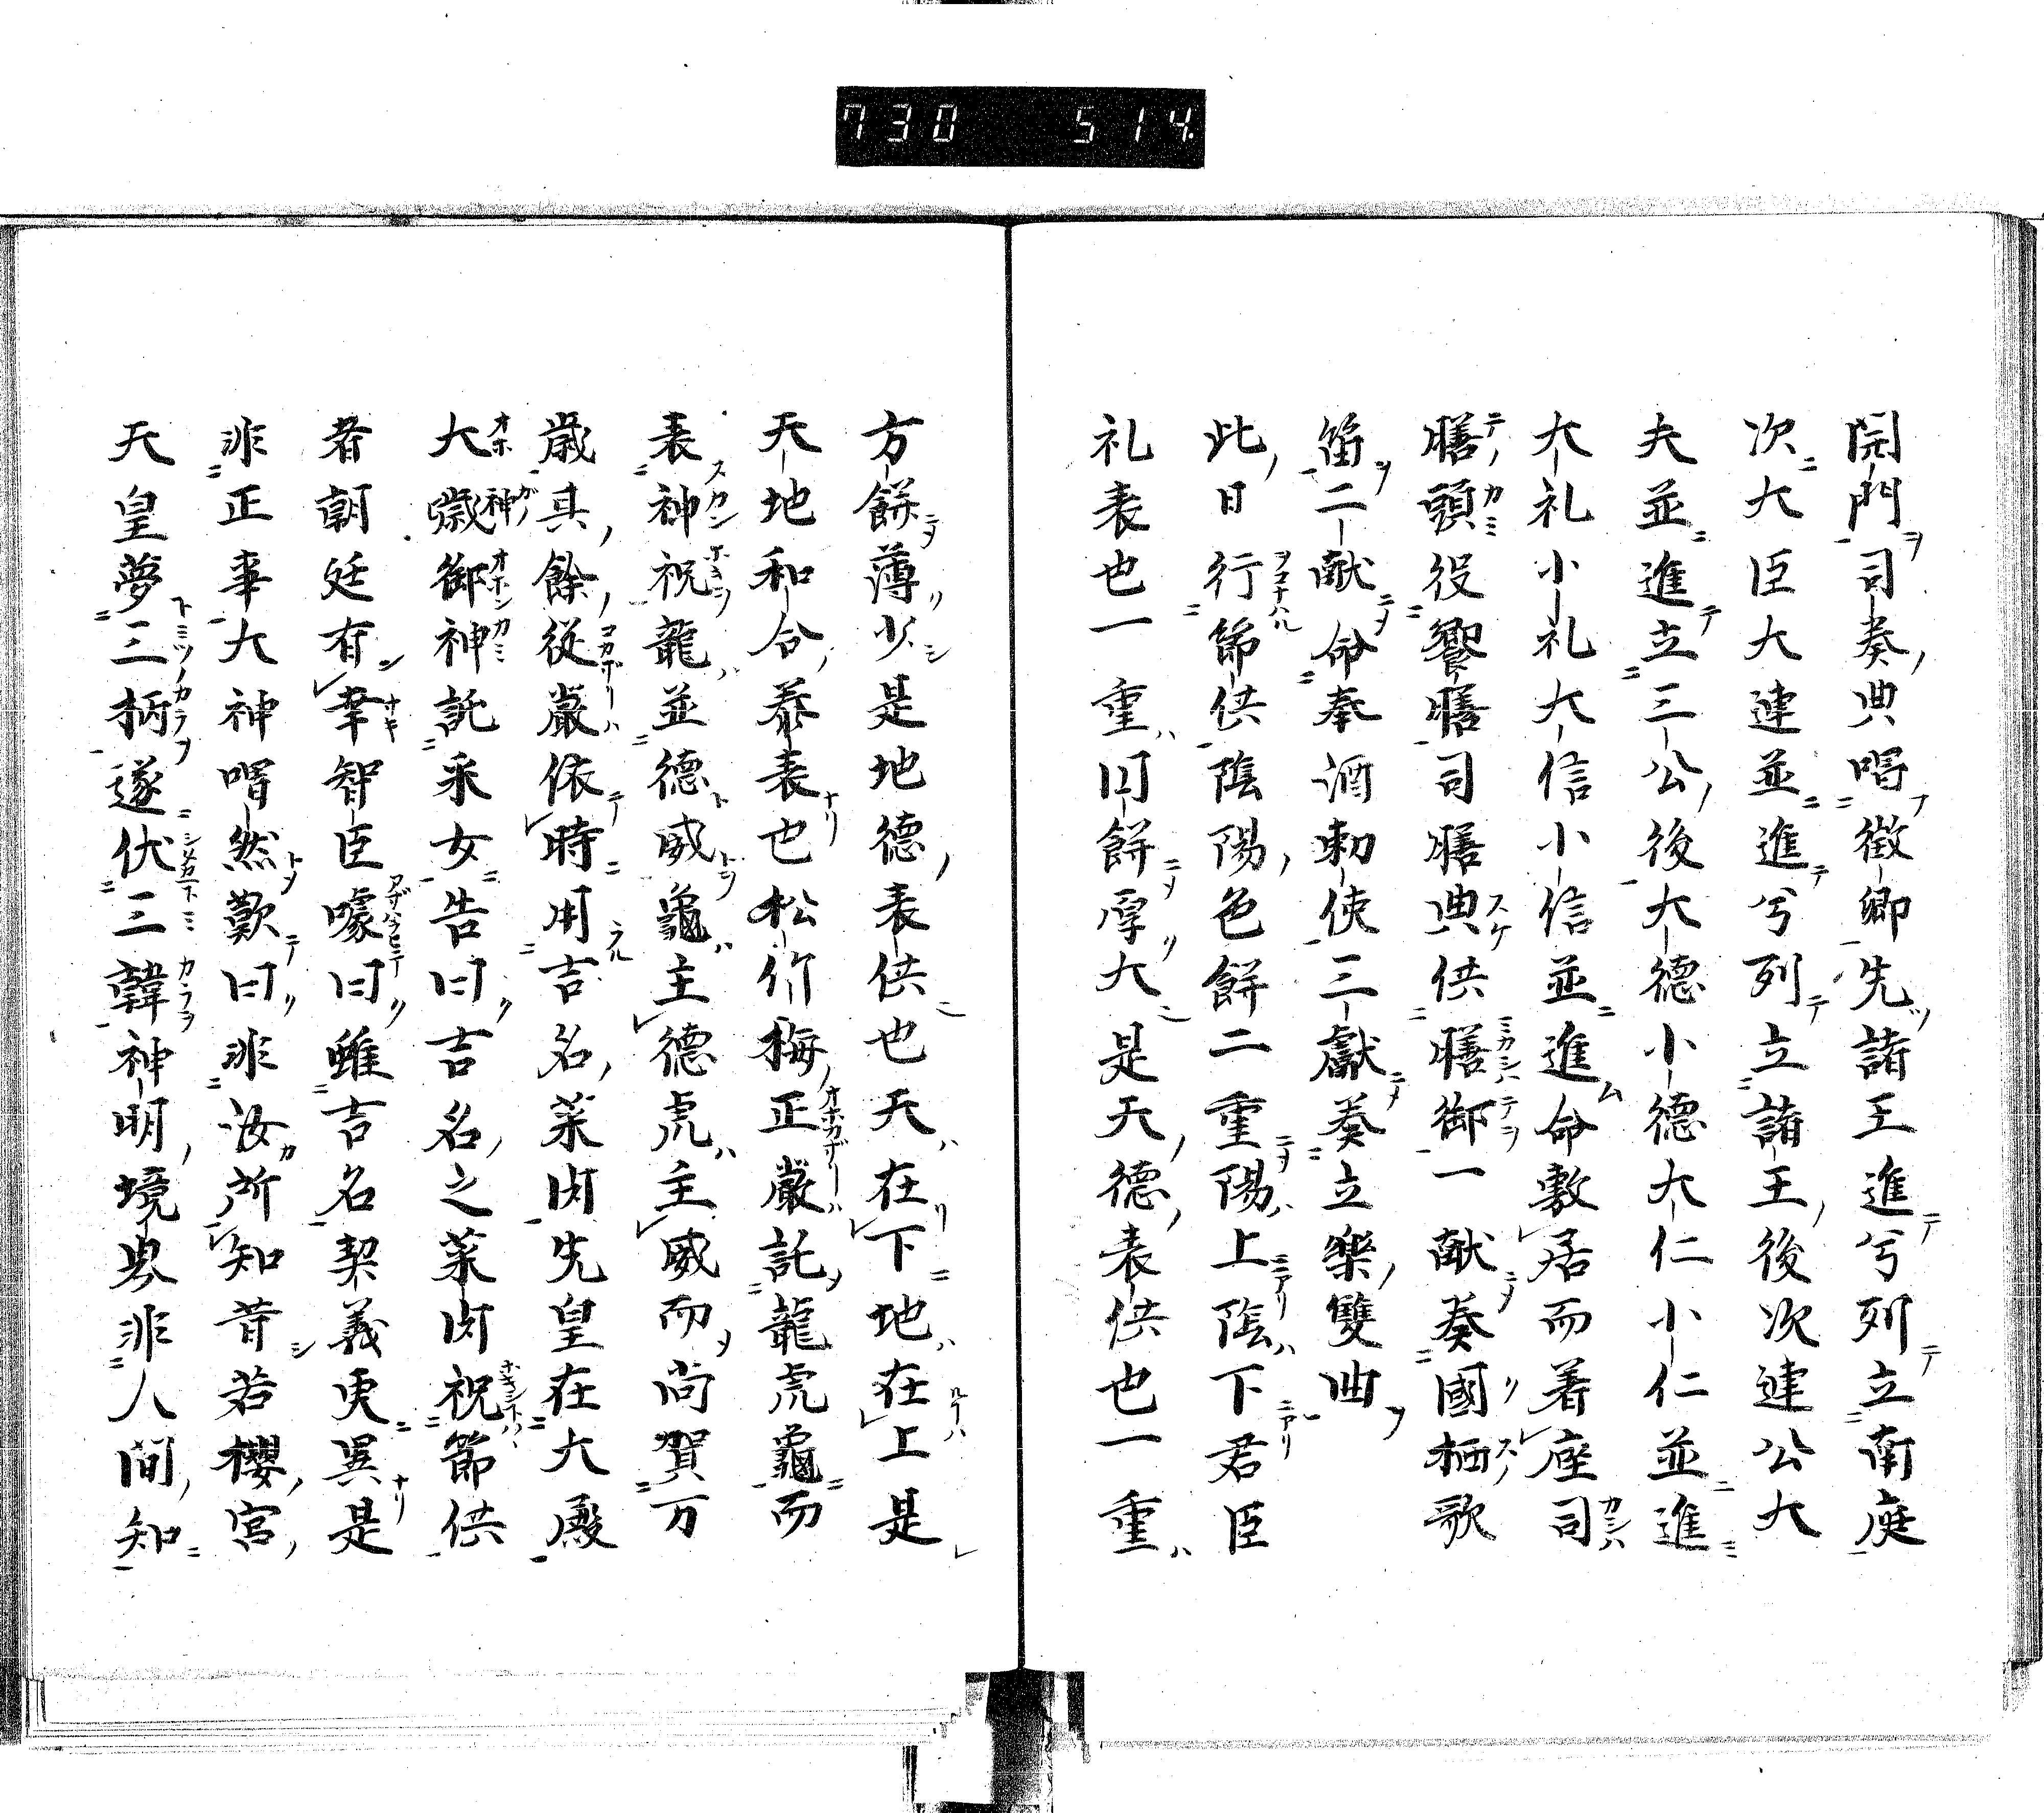 730 514
開門司奏典唱徴卿先諸王進兮列立南庭
次大臣大連並進兮列立諸王後次連公大
夫並進立三公後大德小德大仁小仁並進
大礼小礼大信小信並進命敷居而着座司
膳頭役饗膳司膳典供膳御一献奏國栖歌
笛二献命奉酒勅使三獻奏立樂雙曲
此日行節供陰陽色餅二重陽上陰下君臣
礼表也一重円餅厚大是天德表供也一重
方餅薄少是地德表供也天在下地在上是
天地和合泰表也松竹梅正嚴託龍虎龜而
表神祝龍並德威龜主德虎主威而尚賀万
歳其餘從嚴依時用吉名菜肉先皇在大殿
大歳御神託釆女告曰吉名之菜肉祝節供
者朝廷有幸智臣噱曰雖吉名契義吏異是
非正事大神喟然歎曰非汝所知昔若櫻宮
天皇夢三柄遂伏三韓神明境界非人間知